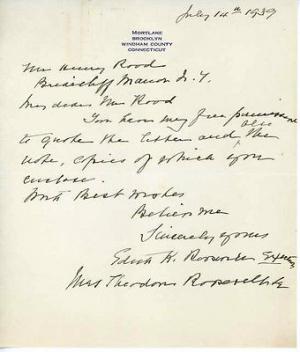 July 14th 1939
MORTLAKE
BROOKLYN
WINDHAM COUNTY
CONNECTICUT
Mr Henry Rood
Briarcliff Manor N.Y.
My dear Mr Rood
You have my free permission
to quote the letter and also the
note, copies of which you
enclose.
With Best wishes
Believe me
Sincerely yours
Edith K. Roosevelt
Mrs Theodore Roosevelt Sr